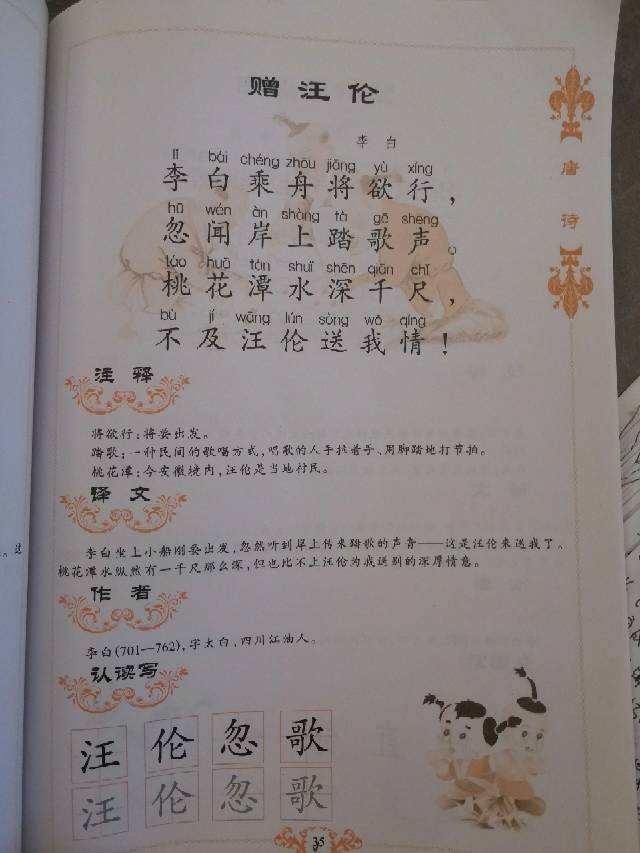 赠汪伦
李白
lǐ bái chéng zhōu jiāng yù xíng
李白乘舟将欲行，
hū wén àn shàng tà gē shēng
忽闻岸上踏歌声。
táo huā tán shuǐ shēn qiān chǐ
桃花潭水深千尺，
bù jí wāng lún sòng wǒ qíng
不及汪伦送我情！
唐诗
注释
将欲行：将要出发。
踏歌：一种民间的歌唱方式，唱歌的人手拉着手、用脚踏地打节拍。
桃花潭：今安徽境内，汪伦是当地村民。
译文
李白坐上小船刚要出发，忽然听到岸上传来踏歌的声音——这是汪伦来送我了。
桃花潭水纵然有一千尺那么深，但也比不上汪伦为我送别的深厚情意。
作者
李白(701—762)，字太白，四川江油人。
认读写
汪伦忽歌
汪伦忽歌
35
。这